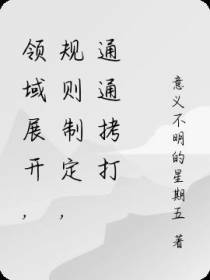 领域展开，
规则制定，
通通拷打
意义不明的星期五 著